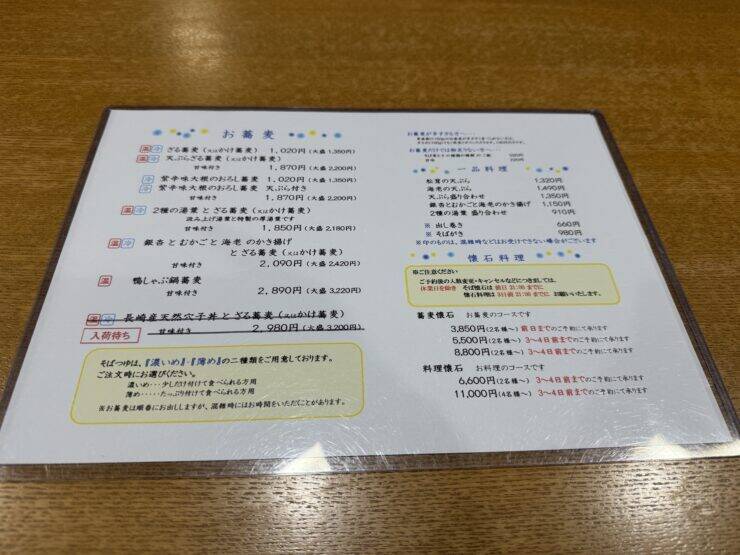 お蕎麦
温 冷 ざる蕎麦(又はかけ蕎麦) 1,020円(大盛1,350円)
温 冷 天ぷらざる蕎麦(又はかけ蕎麦)
甘味付き 1,870円(大盛2,200円)
冷 紫辛味大根のおろし蕎麦 1,020円(大盛1,350円)
冷 紫辛味大根のおろし蕎麦 天ぷら付き
甘味付き 1,870円(大盛2,200円)
温 冷 2種の湯葉とざる蕎麦(又はかけ蕎麦)
汲み上げ湯葉と特製の厚湯葉です
甘味付き 1,850円(大盛2,180円)
温 冷 銀杏とむかごと海老のかき揚げ
とざる蕎麦(又はかけ蕎麦)
甘味付き 2,090円(大盛2,420円)
温 鴨しゃぶ鍋蕎麦
甘味付き 2,890円(大盛3,220円)
温 冷 長崎産天然穴子丼とざる蕎麦(又はかけ蕎麦)
入荷待ち 甘味付き 2,980円(大盛3,200円)
そばつゆは、『濃いめ』『薄め』の二種類をご用意しております。
ご注文時にお選びください。
濃いめ・・・少しだけ付けて食べられる方用
薄め・・・・・たっぷり付けて食べられる方用
※お蕎麦は順番にお出ししますが、混雑時にはお時間をいただくことがあります。
お蕎麦がすきな方へ・・・
お蕎麦だけでは物足りない方へ・・・
甘味
一品料理
松茸の天ぷら 1,320円
海老の天ぷら 1,490円
天ぷら盛り合わせ 1,350円
銀杏とむかごと海老のかき揚げ 1,150円
2種の湯葉 盛り合わせ 910円
※ 出し巻き 660円
※ そばがき 980円
※印のものは、混雑時などはお受けできない場合がございます
懐石料理
※ご注意ください
ご予約後の人数変更・キャンセルなどにつきましては、
休業日を除き そば懐石は 前日 21:00までに
懐石料理は 3日前 21:00までに お願いいたします。
蕎麦懐石 お蕎麦のコースです
3,850円(2名様～) 前日までのご予約にて承ります
5,500円(2名様～) 3～4日前までのご予約にて承ります
8,800円(2名様～) 3～4日前までのご予約にて承ります
料理懐石 お料理のコースです
6,600円(2名様～) 3～4日前までのご予約にて承ります
11,000円(4名様～) 3～4日前までのご予約にて承ります